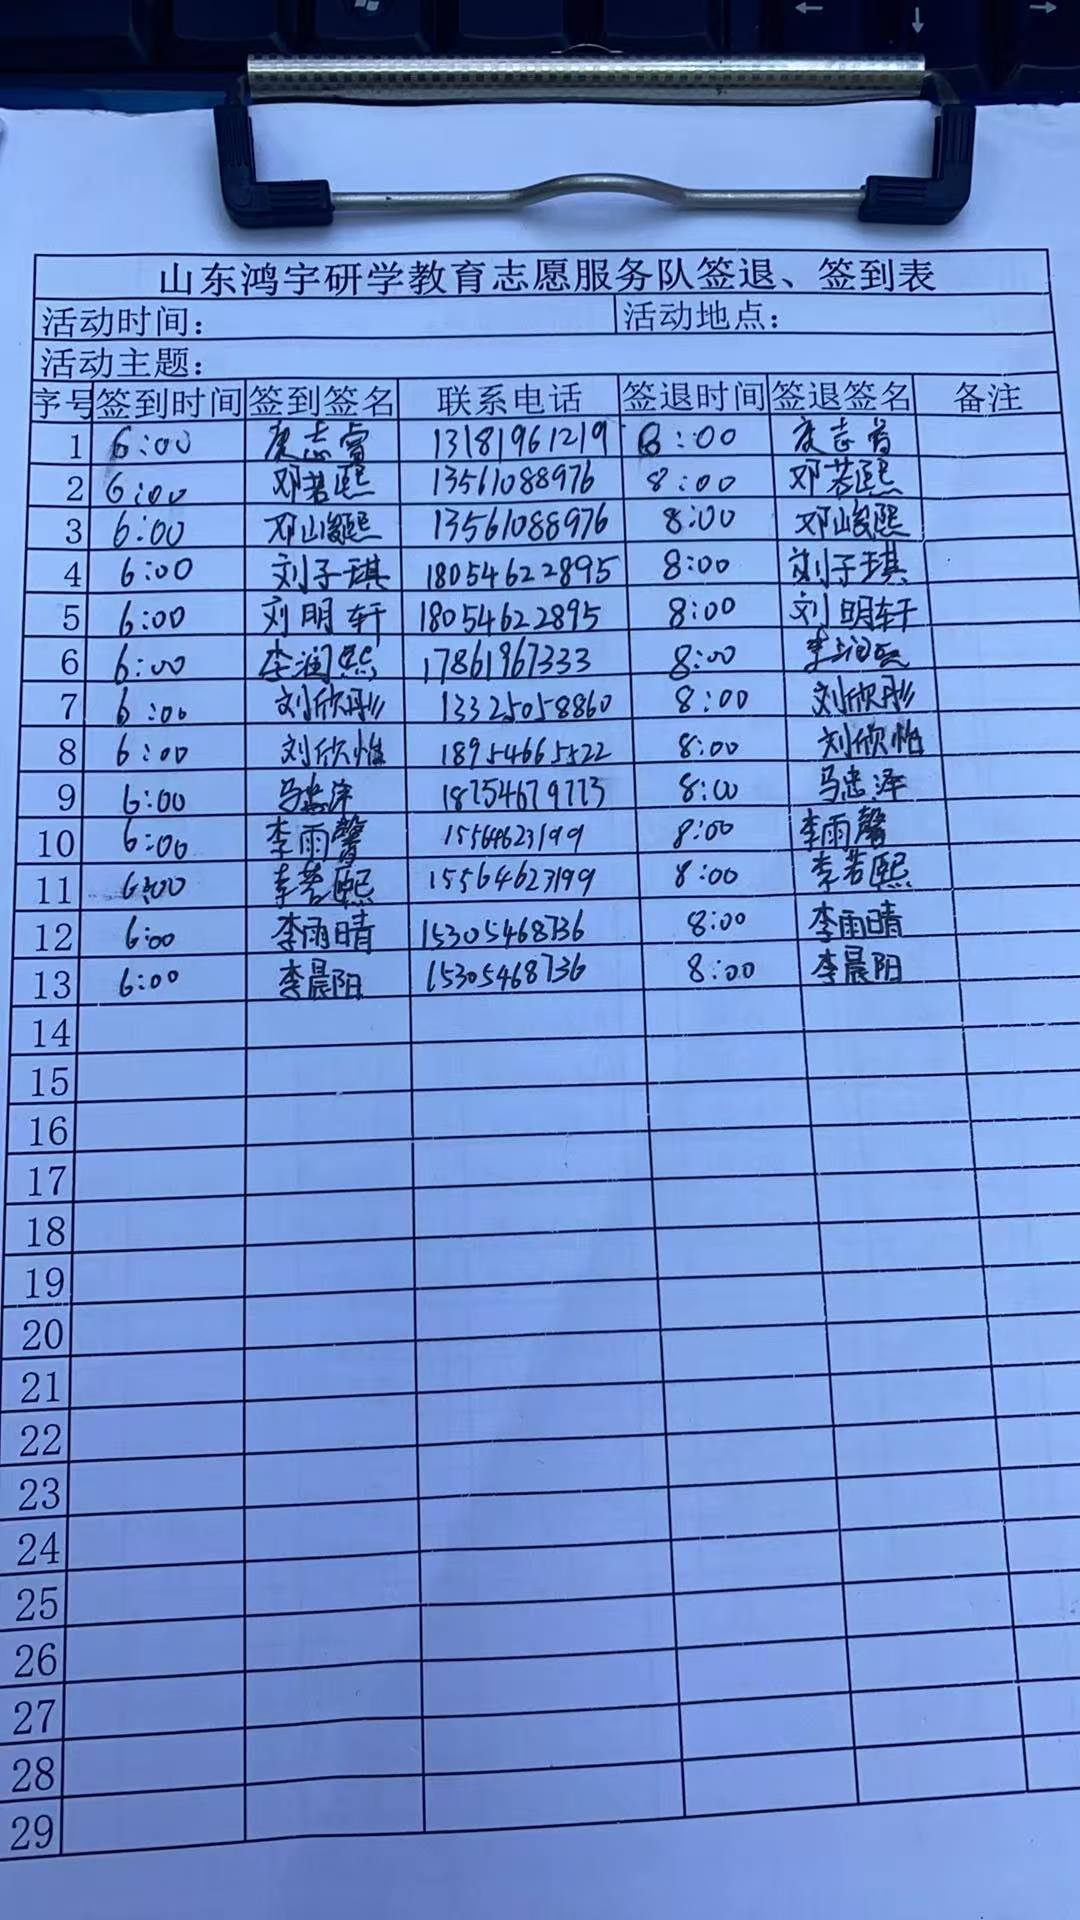 山东鸿宇研学教育志愿服务队签退、签到表
活动时间： 活动地点：
活动主题：
序号 签到时间 签到签名 联系电话 签退时间 签退签名 备注
1 6:00 康志睿 13181961219 8:00 康志睿
2 6:00 邓若熙 13561088976 8:00 邓若熙
3 6:00 邓峻熙 13561088976 8:00 邓峻熙
4 6:00 刘子琪 18054622895 8:00 刘子琪
5 6:00 刘明轩 18054622895 8:00 刘明轩
6 6:00 李润熙 17861967333 8:00 李润熙
7 6:00 刘欣彤 13325058860 8:00 刘欣彤
8 6:00 刘欣怡 18954665522 8:00 刘欣怡
9 6:00 马忠泽 8:00 马忠泽
10 6:00 李雨馨 15564623199 8:00 李雨馨
11 6:00 李若熙 15564623199 8:00 李若熙
12 6:00 李雨晴 15305468736 8:00 李雨晴
13 6:00 李晨阳 15305468736 8:00 李晨阳
14
15
16
17
18
19
20
21
22
23
24
25
26
27
28
29